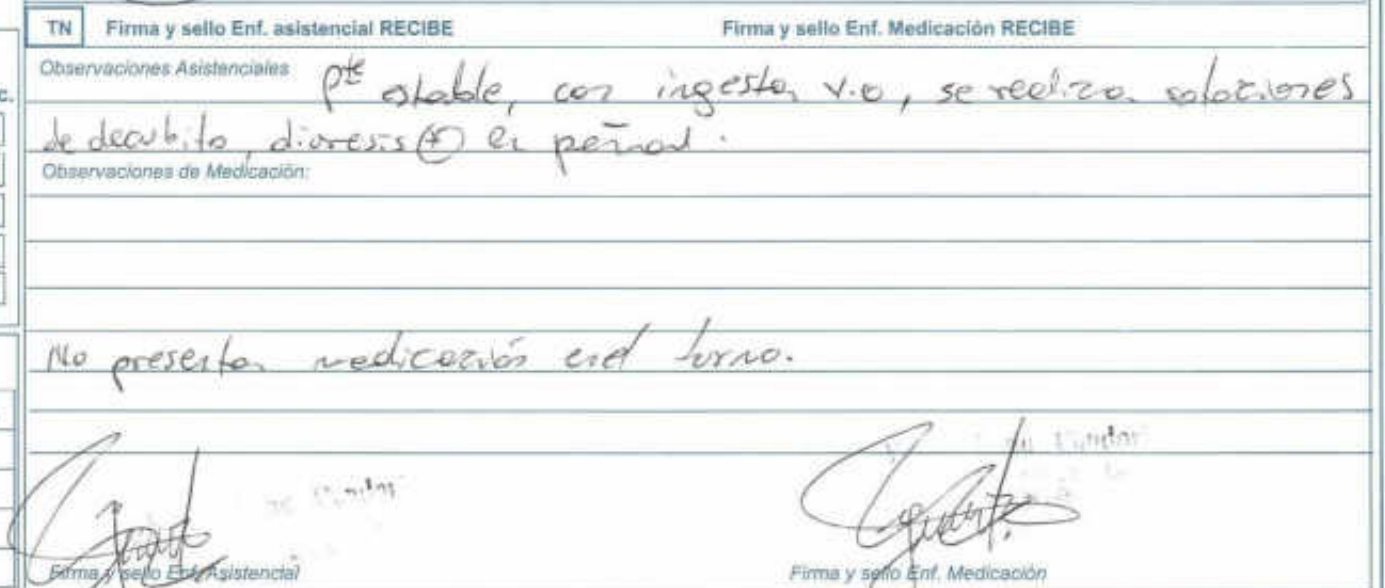 TN Firma y sello Enf. asistencial RECIBE Firma y sello Enf. Medicación RECIBE
Observaciones Asistenciales Pte estable, con ingesta v.o, se realiza rotaciones
de decubito, diuresis (+) en pañal.
Observaciones de Medicación:
No presenta medicación en el turno.
Firma y sello Enf. Asistencial Firma y sello Enf. Medicación